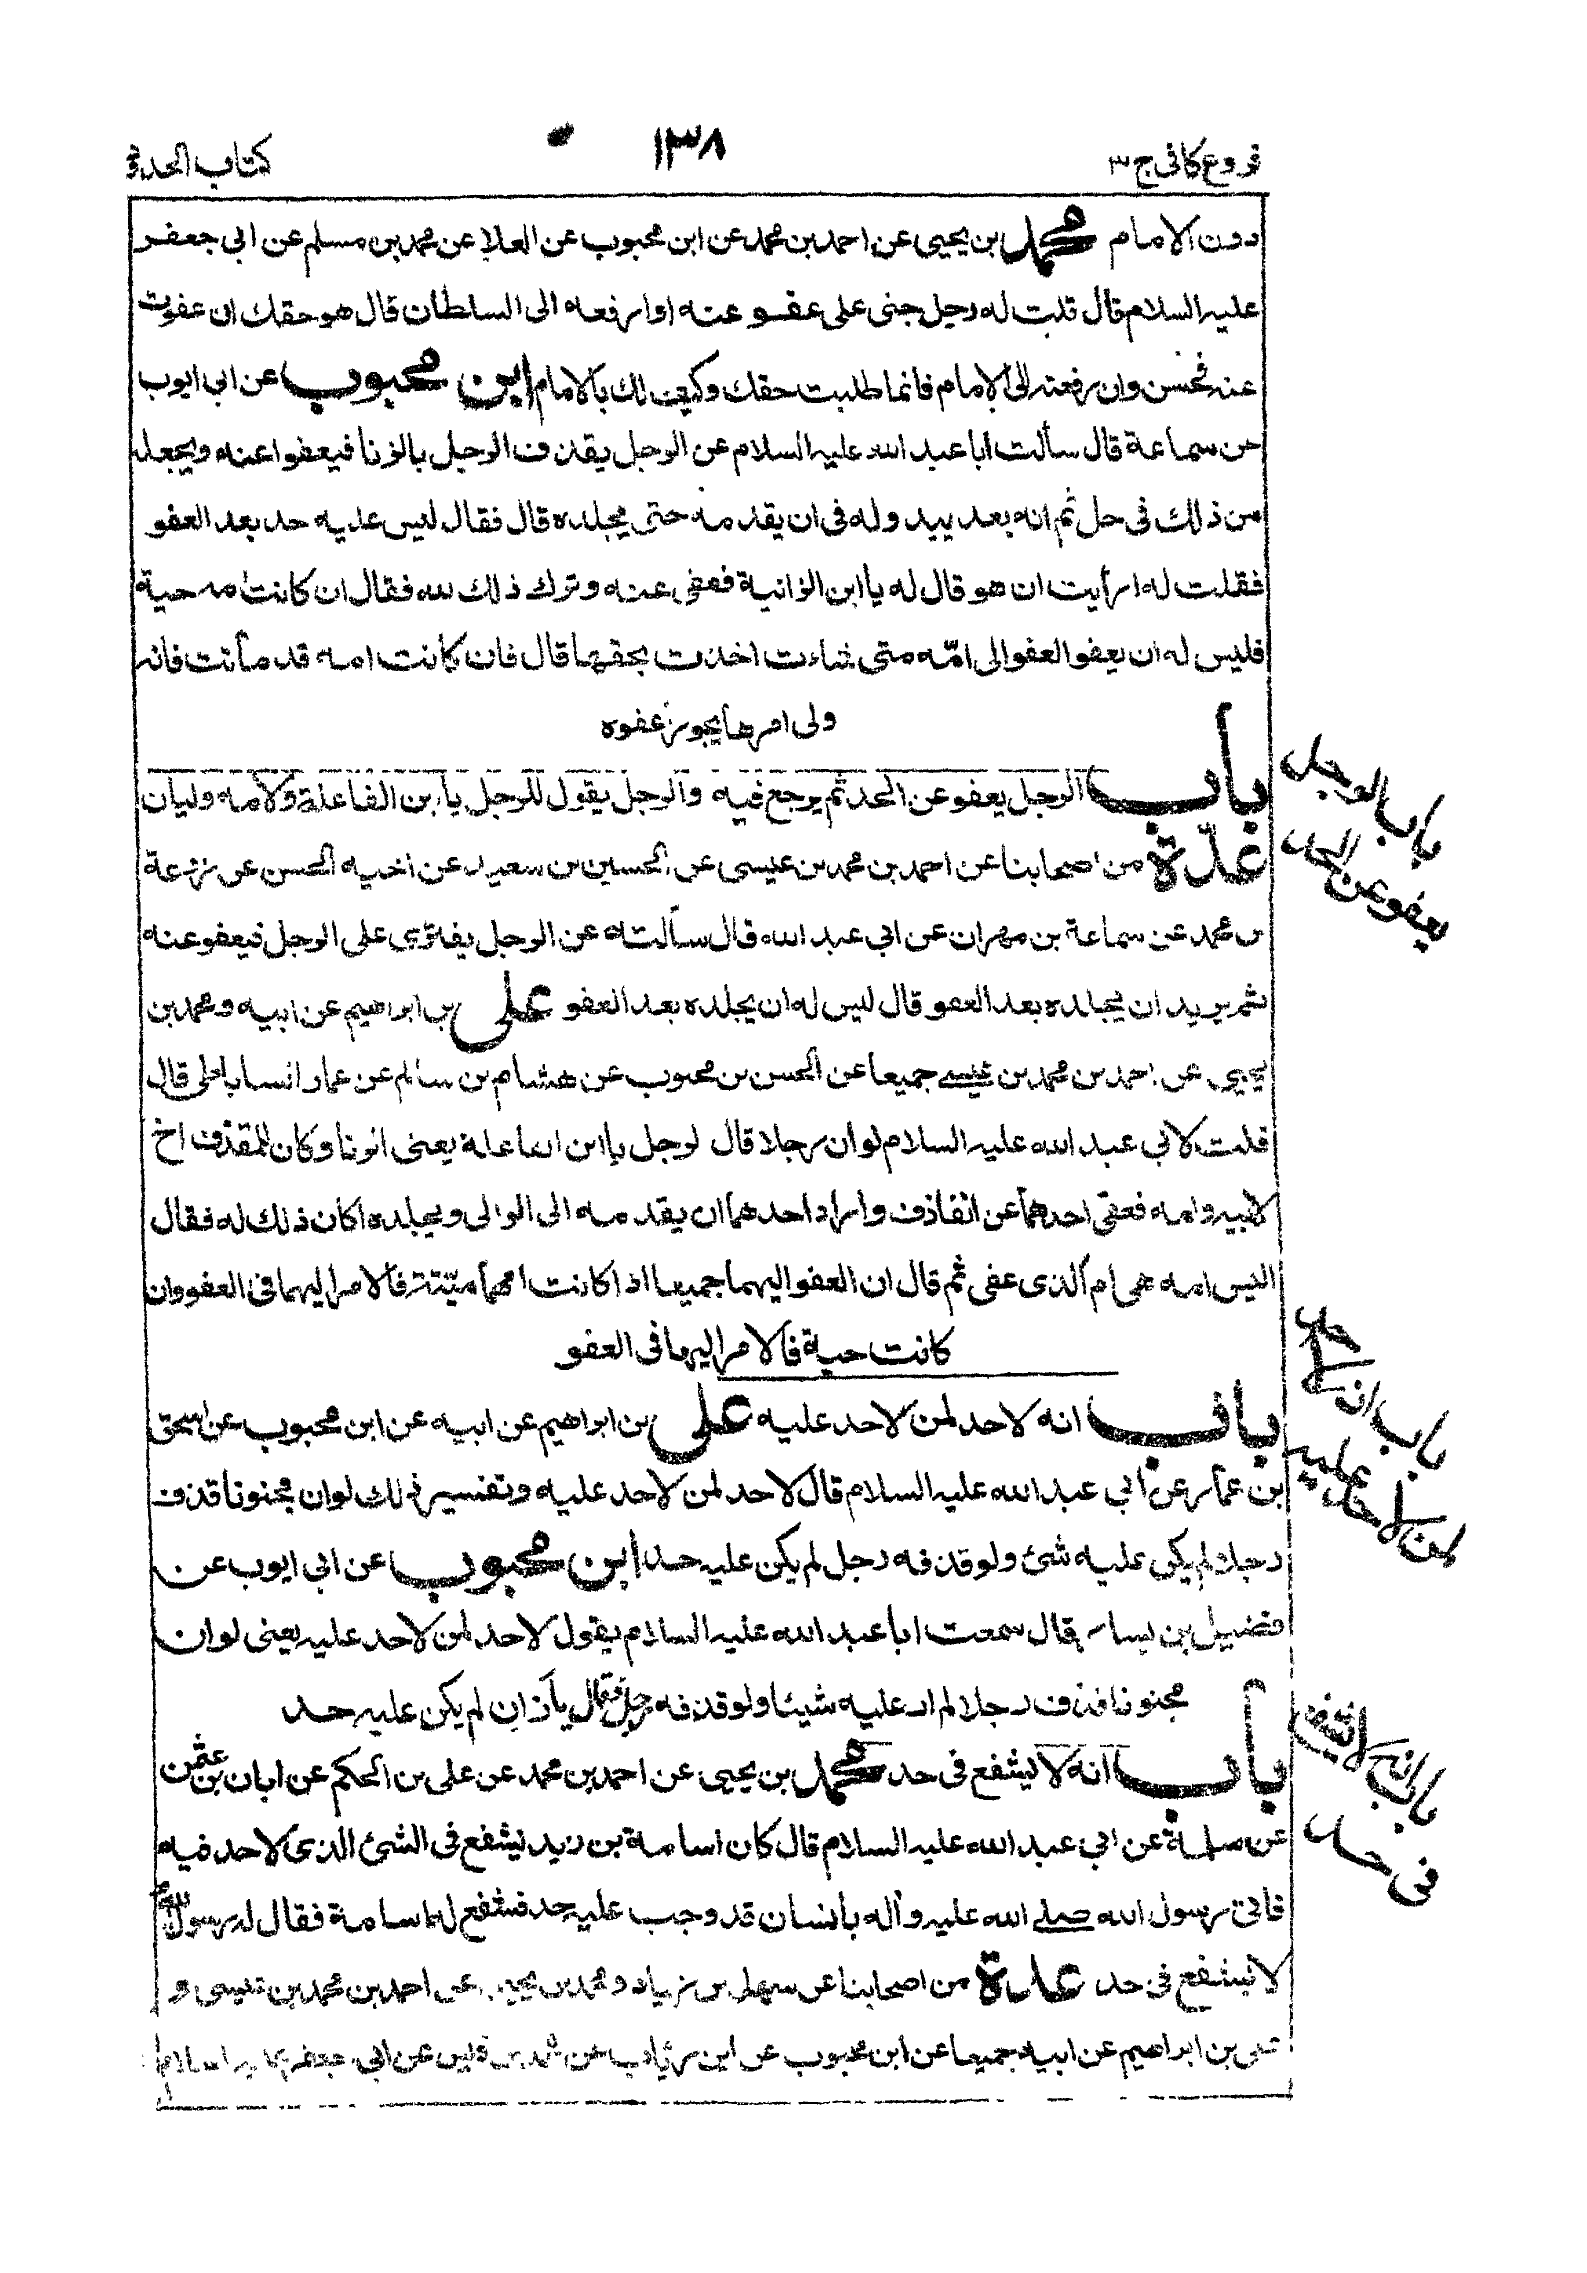 فروع كافى ج٣
١٣٨
كتاب الحدود
دون الامام محمد بن يحيى عن احمد بن محمد عن ابن محبوب عن العلا عن محمد بن مسلم عن ابى جعفر
عليه السلام قال قلت له رجل جنى على عفو عنه او ارفعه الى السلطان قال هو حقك ان عفوت
عنه فحسن وان رفعته الى الامام فانما طلبت حقك وكيف لك بالامام ابن محبوب عن ابى ايوب
عن سماعة قال سألت ابا عبد الله عليه السلام عن الرجل يقذف الرجل بالزنا فيعفوا عنه ويجعله
من ذلك فى حل ثم انه بعد يبد وله فى ان يقدمه حتى يجلده قال فقال ليس عليه حد بعد العفو
فقلت له ارأيت ان هو قال له يا ابن الزانية فعفى عنه وترك ذلك لله فقال ان كانت امه حية
فليس له ان يعفو العفو الى امّه متى شاءت اخذت بحقها قال فان كانت امه قد ماتت فانه
ولى امرها يجوز عفوه
باب الرجل يعفو عن الحد ثم يرجع فيه والرجل يقول للرجل يا بن الفاعلة ولامه وليان
عدّة من اصحابنا عن احمد بن محمد بن عيسى عن الحسين بن سعيد عن اخيه الحسن عن زرعة
بن محمد عن سماعة بن مهران عن ابى عبد الله قال سألته عن الرجل يفترى على الرجل فيعفو عنه
ثم يريد ان يجلده بعد العفو قال ليس له ان يجلده بعد العفو على بن ابراهيم عن ابيه ومحمد بن
يحيى عن احمد بن محمد بن عيسى جميعا عن الحسن بن محبوب عن هشام بن سالم عن عمار الساباطى قال
قلت لابى عبد الله عليه السلام لو ان رجلا قال لرجل يا ابن الفاعلة يعنى الزنا وكان للمقذوف اخ
لابيه وامه فعفى احدهما عن القاذف واراد احدهما ان يقدمه الى الوالى ويجلده اكان ذلك له فقال
اليس امه هى ام الذى عفى ثم قال ان العفو اليهما جميعا اذا كانت امهما ميّتة فالامر اليهما فى العفو وان
كانت حية فالامر اليها فى العفو
باب انه لاحد لمن لاحد عليه على بن ابراهيم عن ابيه عن ابن محبوب عن اسحق
بن عمار عن ابى عبد الله عليه السلام قال لاحد لمن لاحد عليه وتفسير ذلك لو ان مجنونا قذف
رجلا لم يكن عليه شئ ولو قذفه رجل لم يكن عليه حد ابن محبوب عن ابى ايوب عن
فضيل بن يسار قال سمعت ابا عبد الله عليه السلام يقول لاحد لمن لاحد عليه يعنى لو ان
مجنونا قذف رجلا لم ار عليه شيئا ولو قذفه رجل فقال يا زان لم يكن عليه حد
باب انه لا يشفع فى حد محمد بن يحيى عن احمد بن محمد عن على بن الحكم عن ابان بن عثمن
عن سلمة عن ابى عبد الله عليه السلام قال كان اسامة بن زيد يشفع فى الشئ الذى لاحد فيه
فاتى رسول الله صلى الله عليه وآله بانسان قد وجب عليه حد فشفع له اسامة فقال له رسول
لا يشفع فى حد عدة من اصحابنا عن سهل بن زياد ومحمد بن يحيى عن احمد بن محمد بن عيسى و
على بن ابراهيم عن ابيه جميعا عن ابن محبوب عن ابن رئاب عن قيس عن ابى جعفر عليه السلام
باب الرجل
يعفو عن الحد
باب انه لاحد
لمن لاحد عليه
باب انه لا يشفع
فى حد